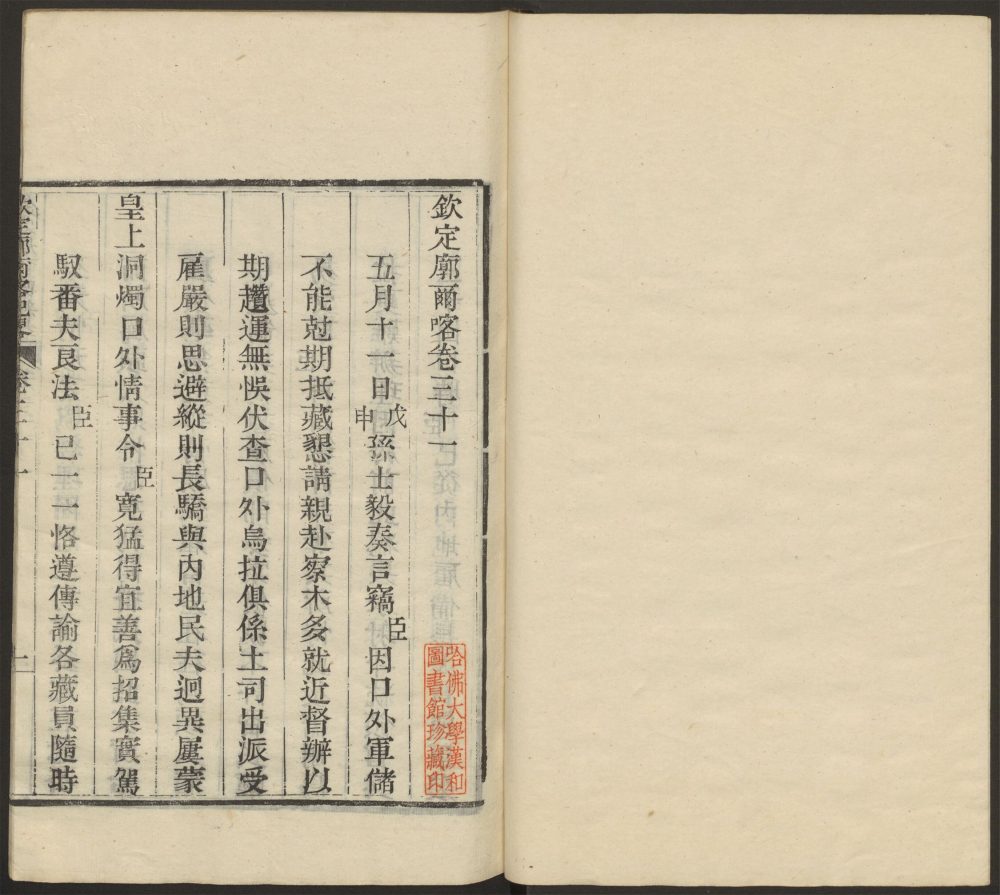 欽定廓爾喀卷三十一
五月十一日戊申孫士毅奏言竊臣因口外軍儲
不能尅期抵藏懇請親赴察木多就近督辦以
期趲運無悞伏查口外烏拉俱係土司出派受
雇嚴則思避縱則長驕與內地民夫迥異屢蒙
皇上洞燭口外情事令臣寬猛得宜善爲招集實駕
馭番夫良法臣已一一恪遵傳諭各藏員隨時
欽定廓爾喀紀畧 卷三十一 一
哈佛大學漢和
圖書館珍藏印